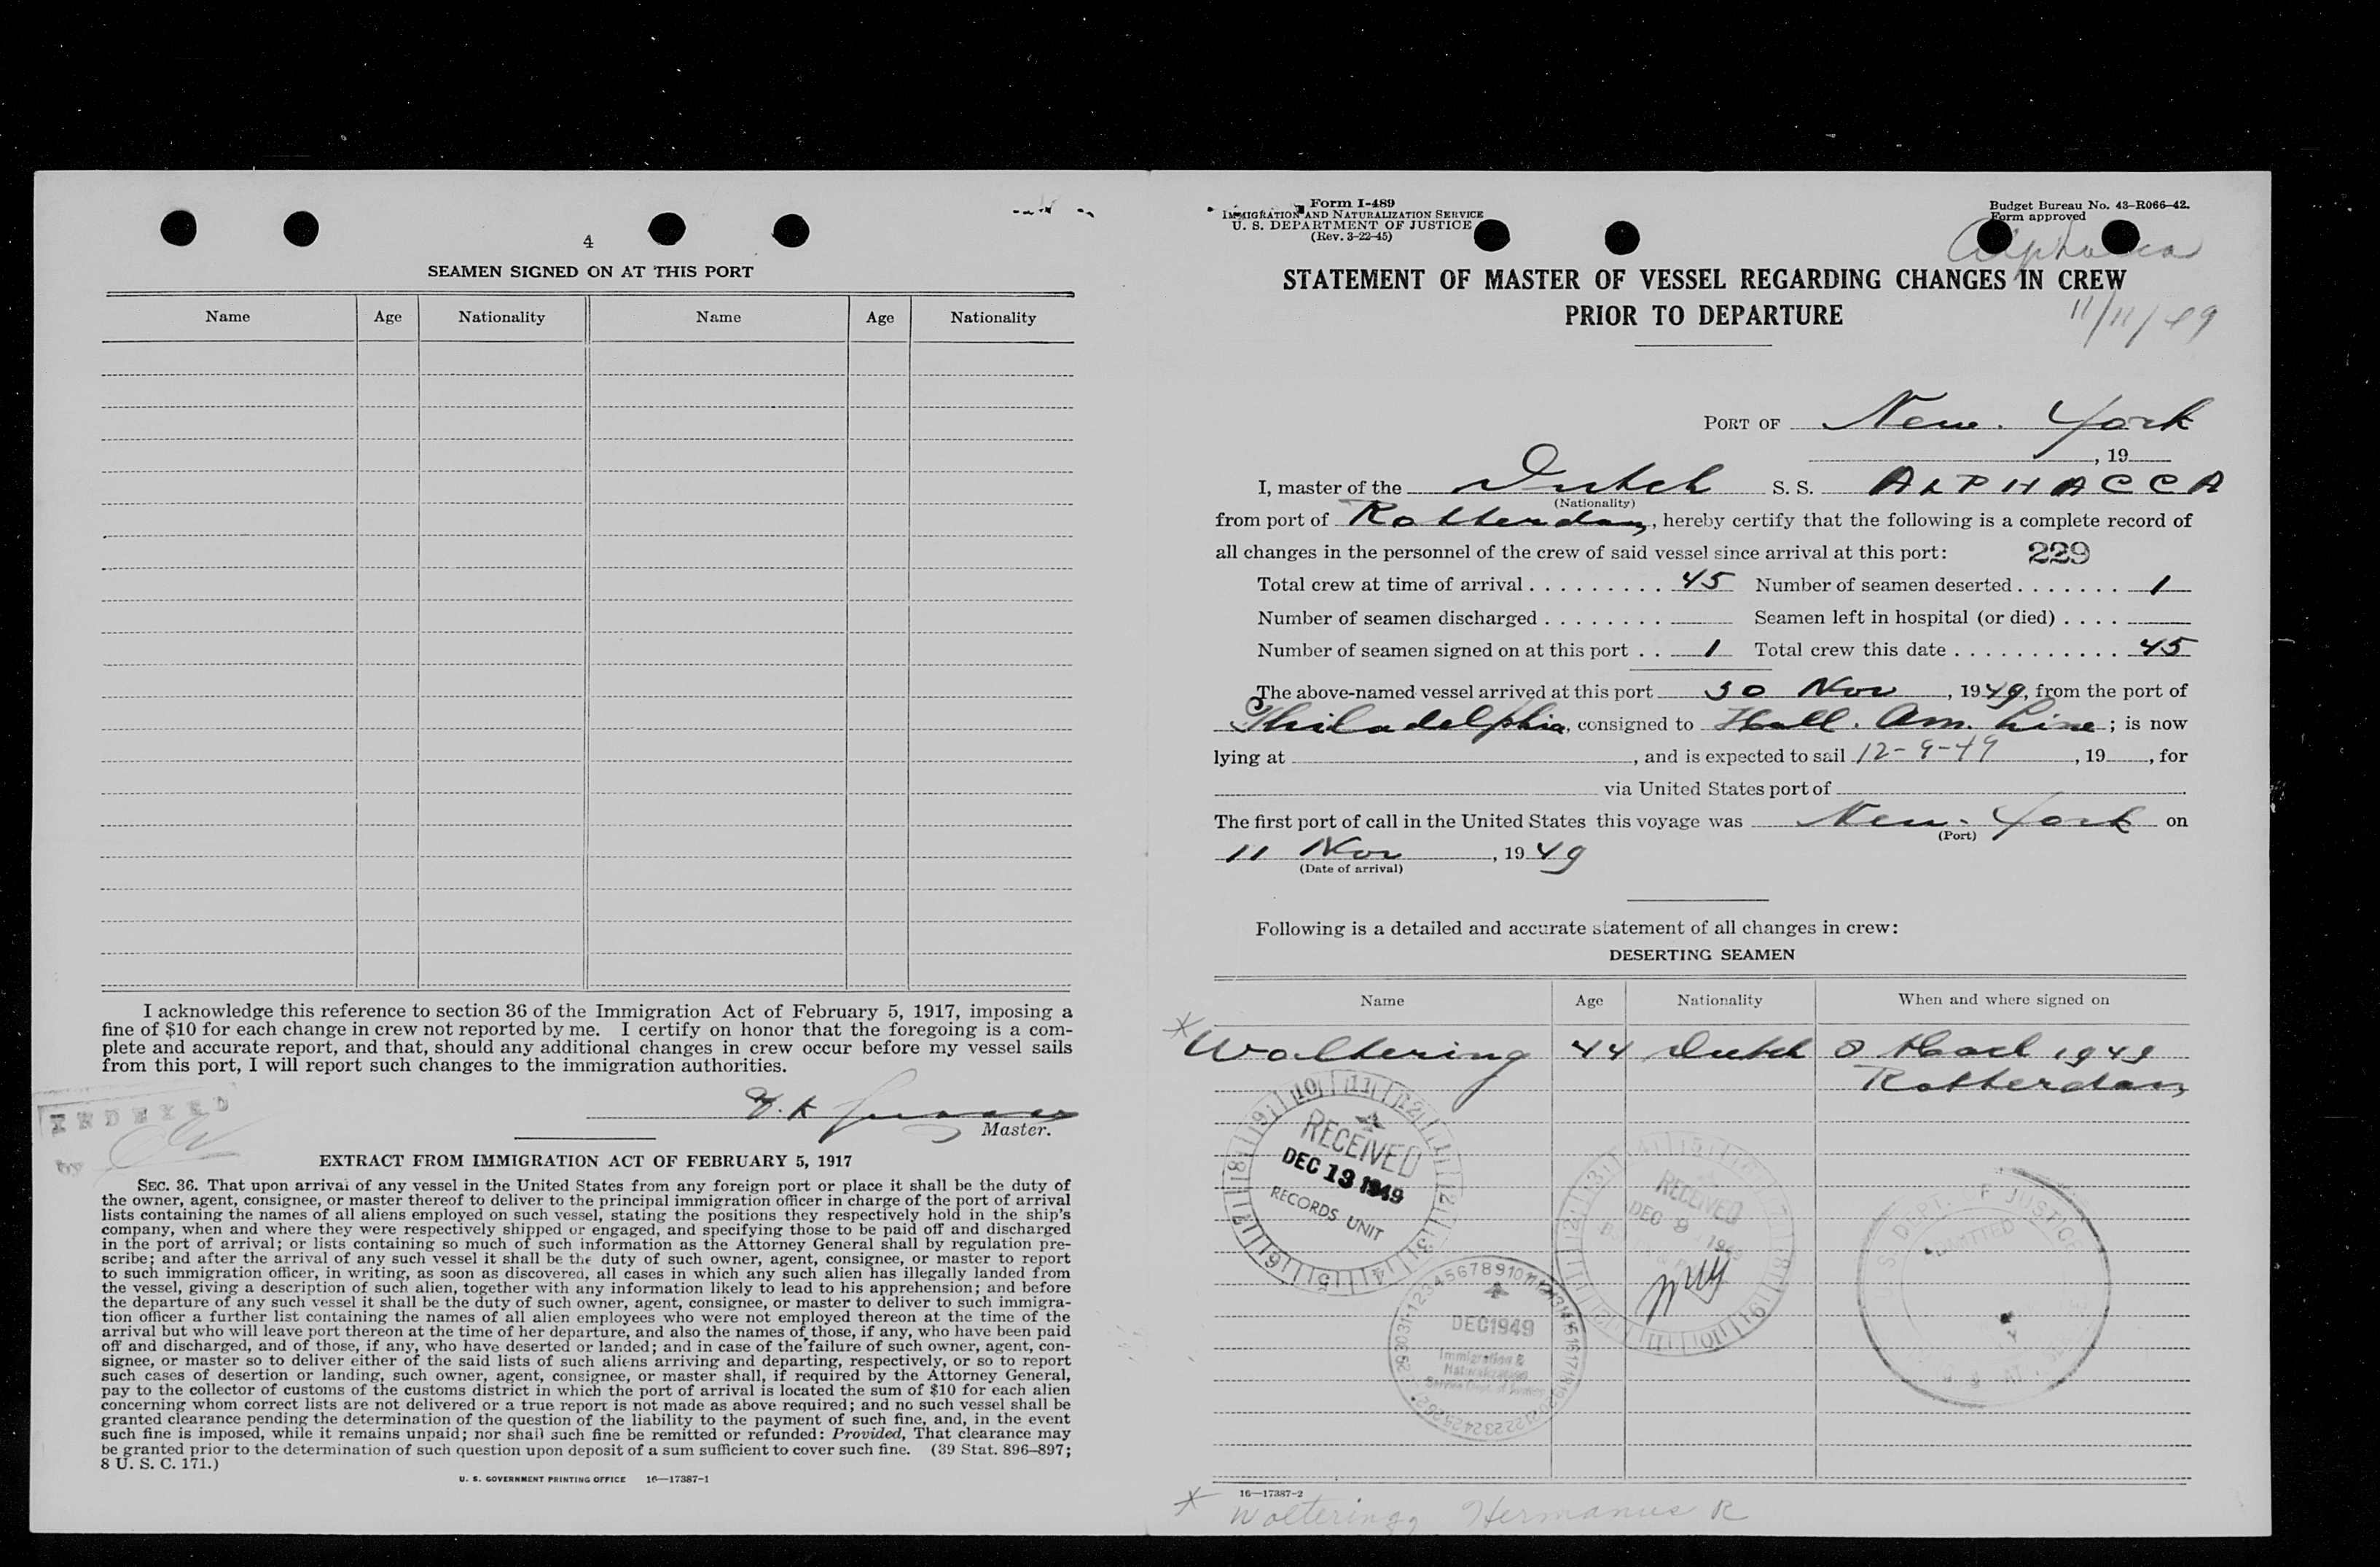 4
SEAMEN SIGNED ON AT THIS PORT
Name Age Nationality Name Age Nationality
I acknowledge this reference to section 36 of the Immigration Act of February 5, 1917, imposing a
fine of $10 for each change in crew not reported by me. I certify on honor that the foregoing is a com-
plete and accurate report, and that, should any additional changes in crew occur before my vessel sails
from this port, I will report such changes to the immigration authorities.
INDEXED
by
Master.
EXTRACT FROM IMMIGRATION ACT OF FEBRUARY 5, 1917
SEC. 36. That upon arrival of any vessel in the United States from any foreign port or place it shall be the duty of
the owner, agent, consignee, or master thereof to deliver to the principal immigration officer in charge of the port of arrival
lists containing the names of all aliens employed on such vessel, stating the positions they respectively hold in the ship's
company, when and where they were respectively shipped or engaged, and specifying those to be paid off and discharged
in the port of arrival; or lists containing so much of such information as the Attorney General shall by regulation pre-
scribe; and after the arrival of any such vessel it shall be the duty of such owner, agent, consignee, or master to report
to such immigration officer, in writing, as soon as discovered, all cases in which any such alien has illegally landed from
the vessel, giving a description of such alien, together with any information likely to lead to his apprehension; and before
the departure of any such vessel it shall be the duty of such owner, agent, consignee, or master to deliver to such immigra-
tion officer a further list containing the names of all alien employees who were not employed thereon at the time of the
arrival but who will leave port thereon at the time of her departure, and also the names of those, if any, who have been paid
off and discharged, and of those, if any, who have deserted or landed; and in case of the failure of such owner, agent, con-
signee, or master so to deliver either of the said lists of such aliens arriving and departing, respectively, or so to report
such cases of desertion or landing, such owner, agent, consignee, or master shall, if required by the Attorney General,
pay to the collector of customs of the customs district in which the port of arrival is located the sum of $10 for each alien
concerning whom correct lists are not delivered or a true report is not made as above required; and no such vessel shall be
granted clearance pending the determination of the question of the liability to the payment of such fine, and, in the event
such fine is imposed, while it remains unpaid; nor shall such fine be remitted or refunded: Provided, That clearance may
be granted prior to the determination of such question upon deposit of a sum sufficient to cover such fine. (39 Stat. 896–897;
8 U. S. C. 171.)
U. S. GOVERNMENT PRINTING OFFICE 16—17387-1
Form I-489
IMMIGRATION AND NATURALIZATION SERVICE
U. S. DEPARTMENT OF JUSTICE
(Rev. 3-22-45)
Budget Bureau No. 43-R066-42.
Form approved
STATEMENT OF MASTER OF VESSEL REGARDING CHANGES IN CREW
PRIOR TO DEPARTURE
11/11/49
PORT OF New. York
, 19
I, master of the Dutch S. S. ALPHACCA
(Nationality)
from port of Rotterdam, hereby certify that the following is a complete record of
all changes in the personnel of the crew of said vessel since arrival at this port: 229
Total crew at time of arrival . . . . . . . . . 45 Number of seamen deserted . . . . . . . 1
Number of seamen discharged . . . . . . . . Seamen left in hospital (or died) . . . .
Number of seamen signed on at this port . . 1 Total crew this date . . . . . . . . . . . 45
The above-named vessel arrived at this port 30 Nov , 1949, from the port of
Philadelphia, consigned to Holl. Am. Line; is now
lying at , and is expected to sail 12-9-49 , 19 , for
via United States port of
The first port of call in the United States this voyage was New-York on
(Port)
11 Nov , 1949
(Date of arrival)
Following is a detailed and accurate statement of all changes in crew:
DESERTING SEAMEN
Name Age Nationality When and where signed on
Woltering 44 Dutch 1949
Rotterdam
RECEIVED
DEC 13 1949
RECORDS UNIT
RECEIVED
DEC 9 1949
DEC 1949
Immigration &
Naturalization
Service Dept. of Justice
U. S. DEPT. OF JUSTICE
ADMITTED
16—17387-2
Woltering, Hermanus R